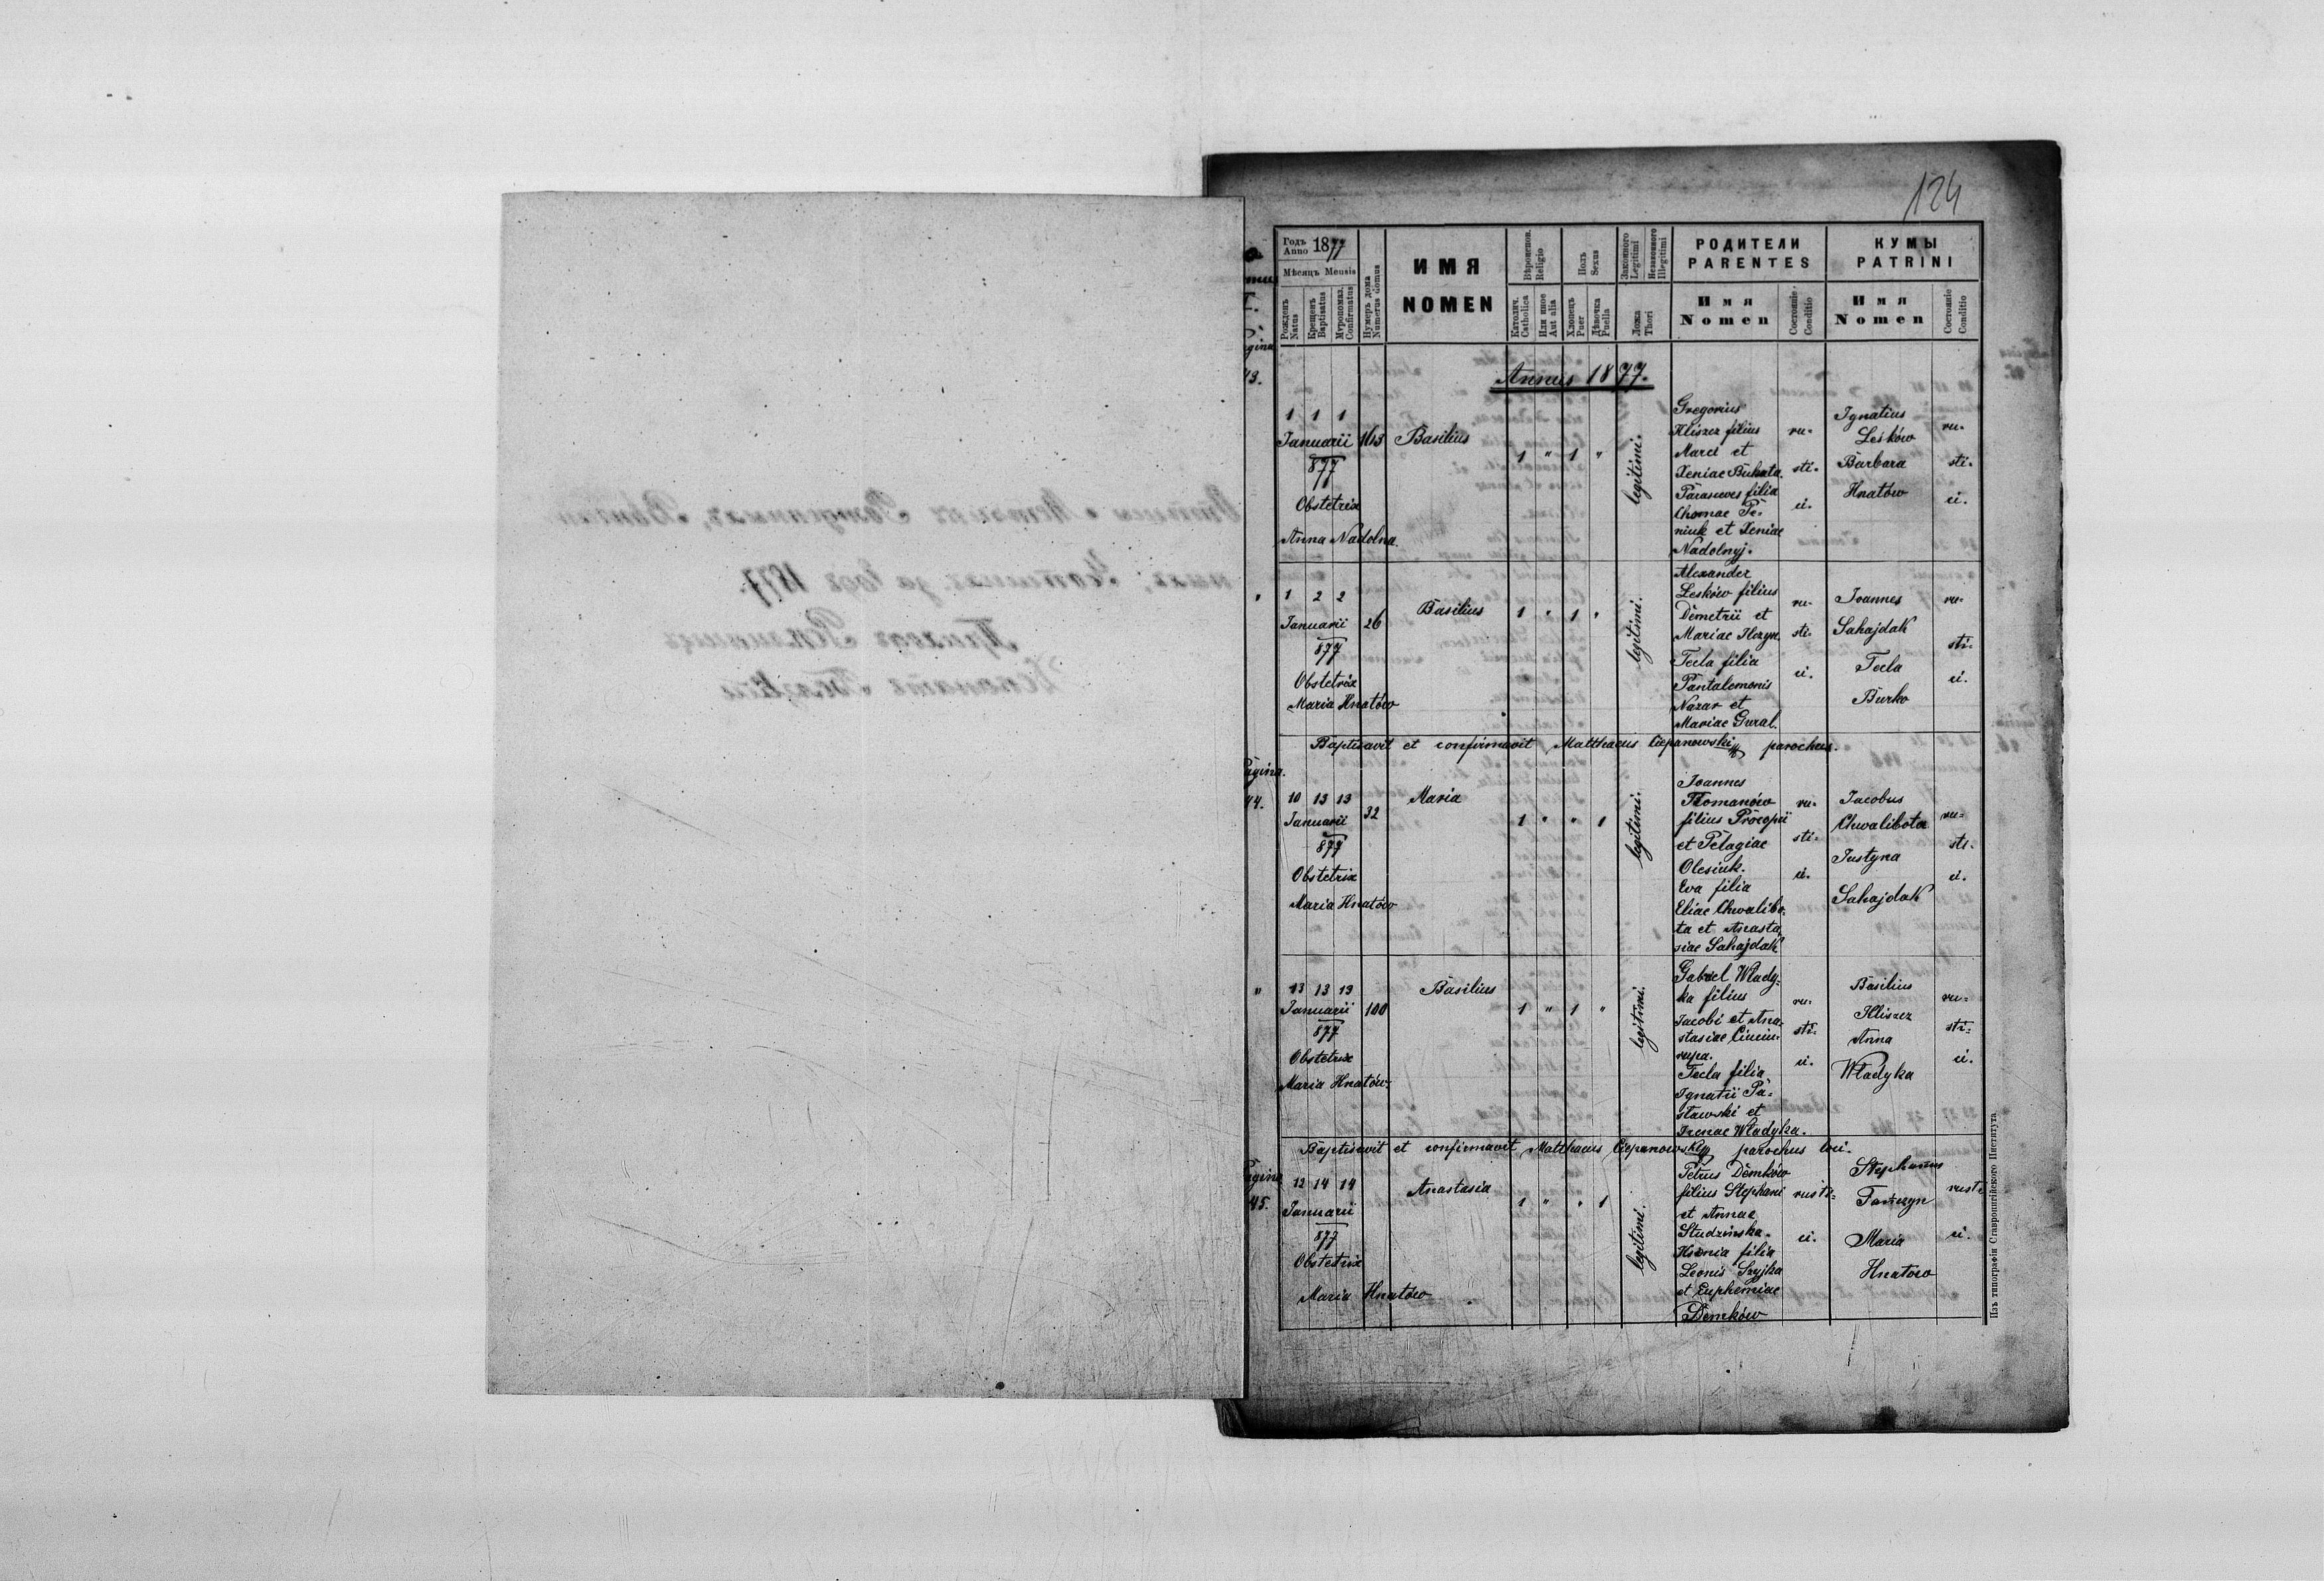 124
Годъ Anno 1877
Мѣсяцъ Mensis
Рожденъ Natus
Крещенъ Baptisatus
Мѵропомаз. Confirmatus
Нумеръ дома Numerus domus
ИМЯ
NOMEN
Вѣроиспов. Religio
Католич. Catholica
Или иное Aut alia
Полъ Sexus
Хлопецъ Puer
Дѣвочка Puella
Законного Legitimi
Незаконного Illegitimi
Ложа Thori
РОДИТЕЛИ
PARENTES
Имя
Nomen
Состояніе Conditio
КУМЫ
PATRINI
Имя
Nomen
Состояніе Conditio
Annus 1877.
1 1 1
Januarii 163
877
Obstetrix
Anna Nadolna
Basilius
1 " 1 "
legitimi.
Gregorius
Kliszcz filius
Marci et
Xeniae Buhata.
Parasceves filia
Chomae Pe-
niuk et Xeniae
Nadolnyj.
ru-
sti-
ci.
Ignatius
Leśków
Barbara
Hnatów
ru-
sti-
ci.
" 1 2 2
Januarii 26
877
Obstetrix
Maria Hnatów
Basilius
1 " 1 "
legitimi.
Alexander
Leśków filius
Demetrii et
Mariae Ilczyn.
Tecla filia
Pantalemonis
Nazar et
Mariae Gural.
ru-
sti-
ci.
Joannes
Sahajdak
Tecla
Burko
ru-
sti-
ci.
Baptisavit et confirmavit Matthaeus Ciepanowski parochus.
Pagina.
44.
10 13 13
Januarii 32
877
Obstetrix
Maria Hnatów
Maria
1 " " 1
legitimi.
Joannes
Romanów
filius Procopii
et Pelagiae
Olesiuk.
Eva filia
Eliae Chwalibo-
ta et Anasta-
siae Sahajdak
ru-
sti-
ci.
Jacobus
Chwalibota
Justyna
Sahajdak
ru-
sti-
ci.
" 13 13 13
Januarii 100
877
Obstetrix
Maria Hnatów.
Basilius
1 " 1 "
legitimi.
Gabriel Włady-
ka filius
Jacobi et Ana-
stasiae
Tecla filia
Ignatii Pa-
sławski et
Irenae Władyka.
ru-
sti-
ci.
Basilius
Kliszcz
Anna
Władyka
ru-
sti-
ci.
Baptisavit et confirmavit Matthaeus Ciepanowski parochus loci.
Pagina
45.
12 14 14
Januarii
877
Obstetrix
Maria Hnatów
Anastasia
1 " " 1
legitimi.
Petrus Demków
filius Stephani
et Annae
Studzinska.
filia
Leonis Szyjka
et Euphemiae
Demków
rusti-
ci.
Stephanus
Maria
Hnatow
rusti
ci.
Изъ типографіи Ставропигійского Института